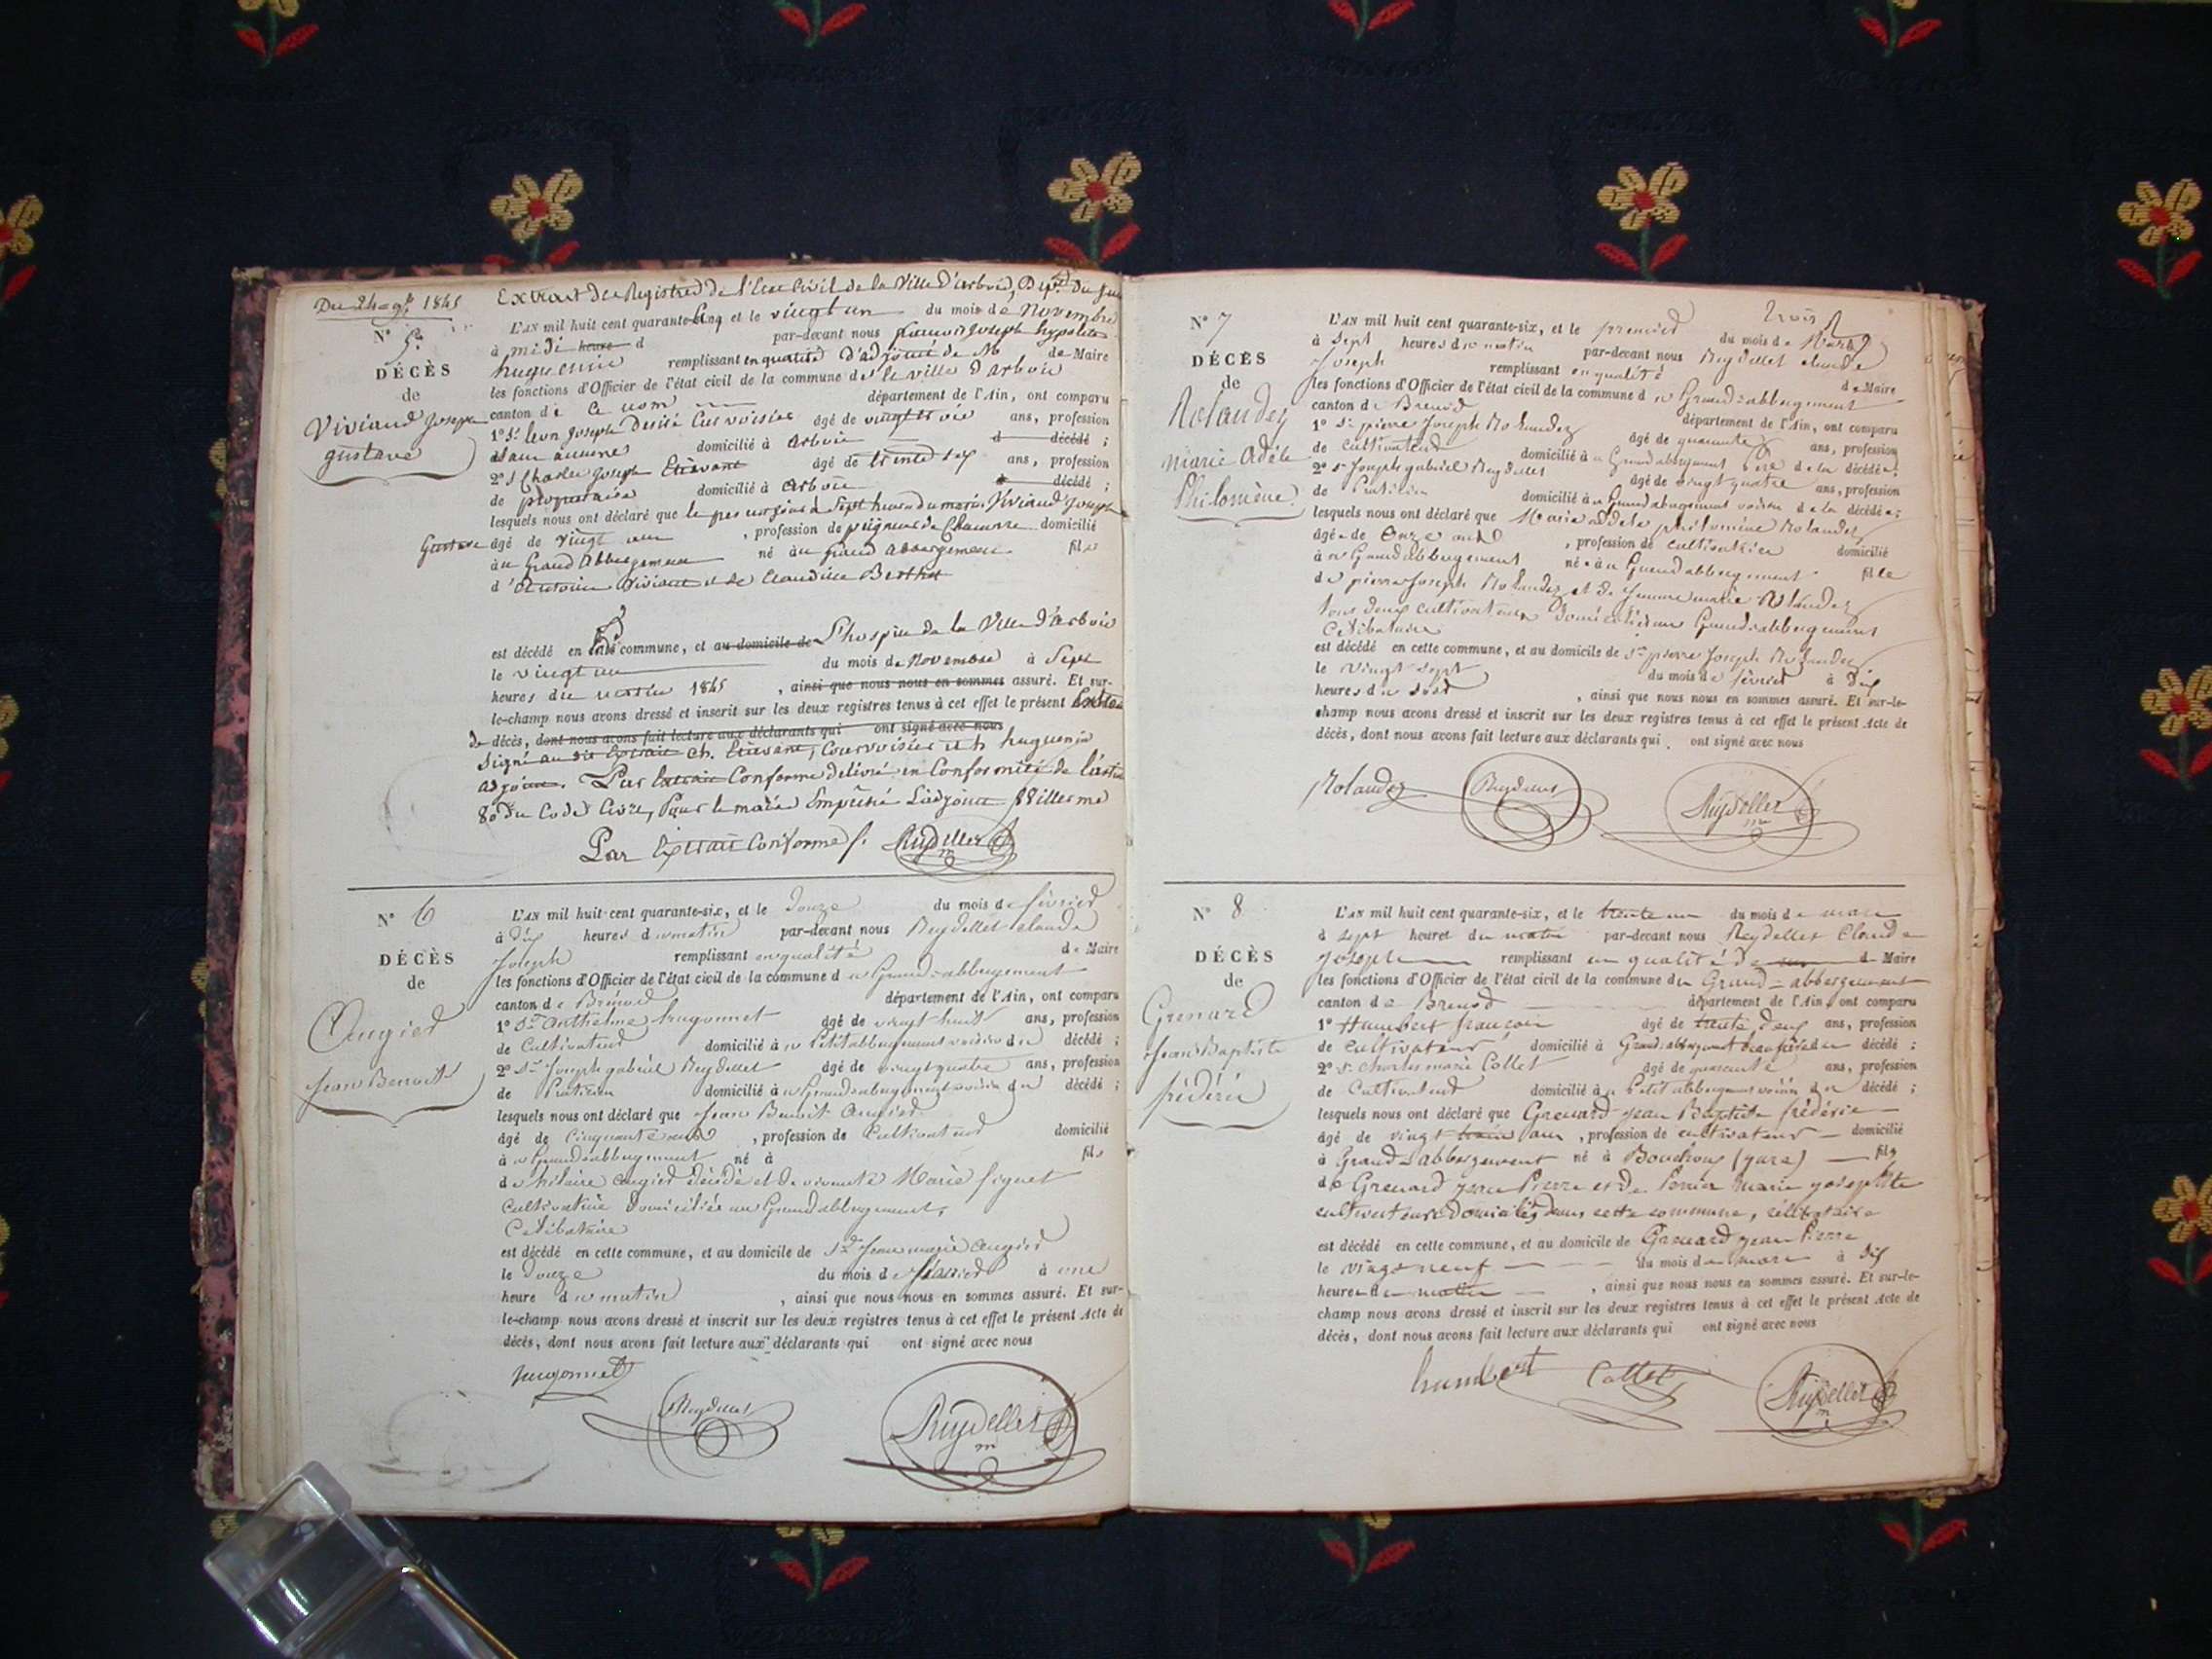 Du 24 = 9bre 1845
Extrait des Registres de l'Etat Civil de la Ville d'arbois, Dept du Jura
N° 5.
DÉCÈS
de
Viviand Joseph
gustave
L'AN mil huit cent quarante-cinq et le vingt un du mois de Novembre
à midi heure d par-devant nous françois Joseph hyppolite
huguenin remplissant en qualité d'adjoint de M de Maire
les fonctions d'Officier de l'état civil de la commune de la ville d'arbois
canton de ce nom département de l'Ain, ont comparu
1° Sr leon Joseph Desiré Courvoisier âgé de ans, profession
domicilié à arbois d décédé ;
2° S Charles Joseph Etievant âgé de trente six ans, profession
de propriétaire domicilié à arbois décédé ;
lesquels nous ont déclaré que le jour à Sept heures du matin Viviand Joseph
Gustave âgé de vingt un , profession de peigneur de Chanvre domicilié
au Grand Abbergement né au grand abbergement fils
d'Antoine Viviand et de Claudine Berthet
est décédé en cette commune, et au domicile de L'hospice de la Ville d'arbois
le vingt un du mois de Novembre à Sept
heures du matin 1845 , ainsi que nous nous en sommes assuré. Et sur-
le-champ nous avons dressé et inscrit sur les deux registres tenus à cet effet le présent Extrait
de décès, dont nous avons fait lecture aux déclarants qui ont signé avec nous
Signé au dit Extrait Ch. Etievant, Courvoisier et h huguenin
adjoint. Pur Extrait Conforme delivré en Conformité de l'article
80 du Code Civil, Pour le maire Empêché L'adjoint Willerme
Par Extrait Conforme Reydellet m
N° 6
DÉCÈS
de
Augier
Jean Benoit
L'AN mil huit cent quarante-six, et le douze du mois de février
à dix heures du matin par-devant nous Reydellet Claude
Joseph remplissant en qualité de Maire
les fonctions d'Officier de l'état civil de la commune du Grand-abbergement
canton de Brénod département de l'Ain, ont comparu
1° Sr Anthelme hugonnet âgé de vingt huit ans, profession
de Cultivateur domicilié à u Petit abbergement voisin du décédé ;
2° Sr Joseph gabriel Reydellet âgé de vingt quatre ans, profession
de Praticien domicilié à u Grand abbergement voisin du décédé ;
lesquels nous ont déclaré que Jean Benoit Augier
âgé de Cinquante , profession de Cultivateur domicilié
à u Grand abbergement né à fils
de hilaire augier décédé et de vivante Marie figuet
Cultivatrice domiciliée au Grand abbergement,
Célibataire
est décédé en cette commune, et au domicile de Sr Jean marie augier
le douze du mois de février à une
heure du matin , ainsi que nous nous en sommes assuré. Et sur-
le-champ nous avons dressé et inscrit sur les deux registres tenus à cet effet le présent Acte de
décès, dont nous avons fait lecture aux déclarants qui ont signé avec nous
hugonnet
Reydellet
Reydellet m
N° 7
DÉCÈS
de
Rolandez
marie Adèle
Philomène
trois
L'AN mil huit cent quarante-six, et le premier du mois de Mars
à sept heures du matin par-devant nous Reydellet claude
Joseph remplissant en qualité de Maire
les fonctions d'Officier de l'état civil de la commune du Grand-abbergement
canton de Brenod département de l'Ain, ont comparu
1° Sr pierre Joseph Rolandez âgé de quarante ans, profession
de Cultivateur domicilié à u Grand abbergement père de la décédée ;
2° Sr Joseph gabriel Reydellet âgé de vingt quatre ans, profession
de Praticien domicilié à u Grand abbergement voisin de la décédée ;
lesquels nous ont déclaré que Marie adele philomène Rolandez
âgée de Onze ans , profession de cultivatrice domicilié
à u Grand abbergement née au Grand abbergement fille
de pierre Joseph Rolandez et de Jeanne marie Rolandez
tous deux cultivateurs domiciliés au Grand-abbergement
Célibataire
est décédé en cette commune, et au domicile de Sr pierre Joseph Rolandez
le vingt sept du mois de février à dix
heures du soir , ainsi que nous nous en sommes assuré. Et sur-le-
champ nous avons dressé et inscrit sur les deux registres tenus à cet effet le présent Acte de
décès, dont nous avons fait lecture aux déclarants qui ont signé avec nous
Rolandez Reydellet Reydellet m
N° 8
DÉCÈS
de
Grenard
Jean Baptiste
frédéric
L'AN mil huit cent quarante-six, et le trente un du mois de mars
à sept heures du matin par-devant nous Reydellet Claude
Joseph remplissant en qualité de de Maire
les fonctions d'Officier de l'état civil de la commune du Grand-abbergement
canton de Brenod département de l'Ain, ont comparu
1° Humbert françois âgé de trente deux ans, profession
de cultivateur domicilié à Grand abbergement beau frère du décédé ;
2° Sr Charles marie Collet âgé de quarante ans, profession
de Cultivateur domicilié à u Petit abbergement voisin du décédé ;
lesquels nous ont déclaré que Grenard Jean Baptiste frédéric
âgé de vingt trois ans , profession de cultivateur domicilié
à Grand abbergement né à Bouchoux (jura) fils
de Grenard Jean Pierre et de Perrier Marie Josephte
cultivateurs domiciliés dans cette commune, célibataire
est décédé en cette commune, et au domicile de Grenard Jean Pierre
le vingt neuf du mois de mars à dix
heures du matin , ainsi que nous nous en sommes assuré. Et sur-le-
champ nous avons dressé et inscrit sur les deux registres tenus à cet effet le présent Acte de
décès, dont nous avons fait lecture aux déclarants qui ont signé avec nous
humbert Collet Reydellet m